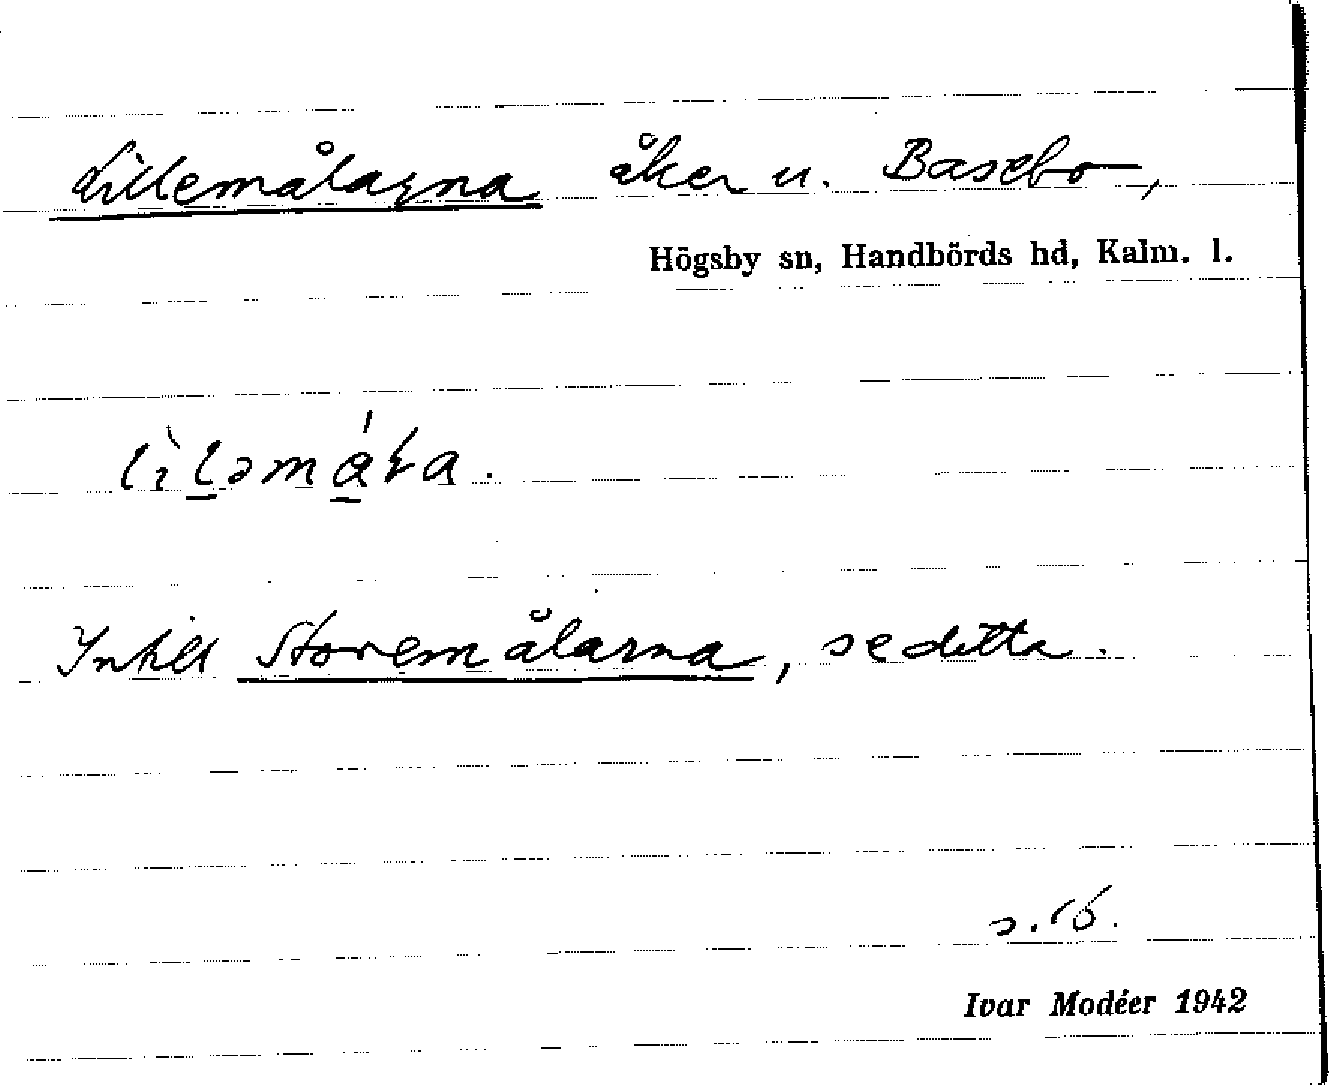 Lillemålarna åker u. Basebo,
Högsby sn, Handbörds hd, Kalm. l.
Intill Storemålarna, se detta.
Ivar Modéer 1942